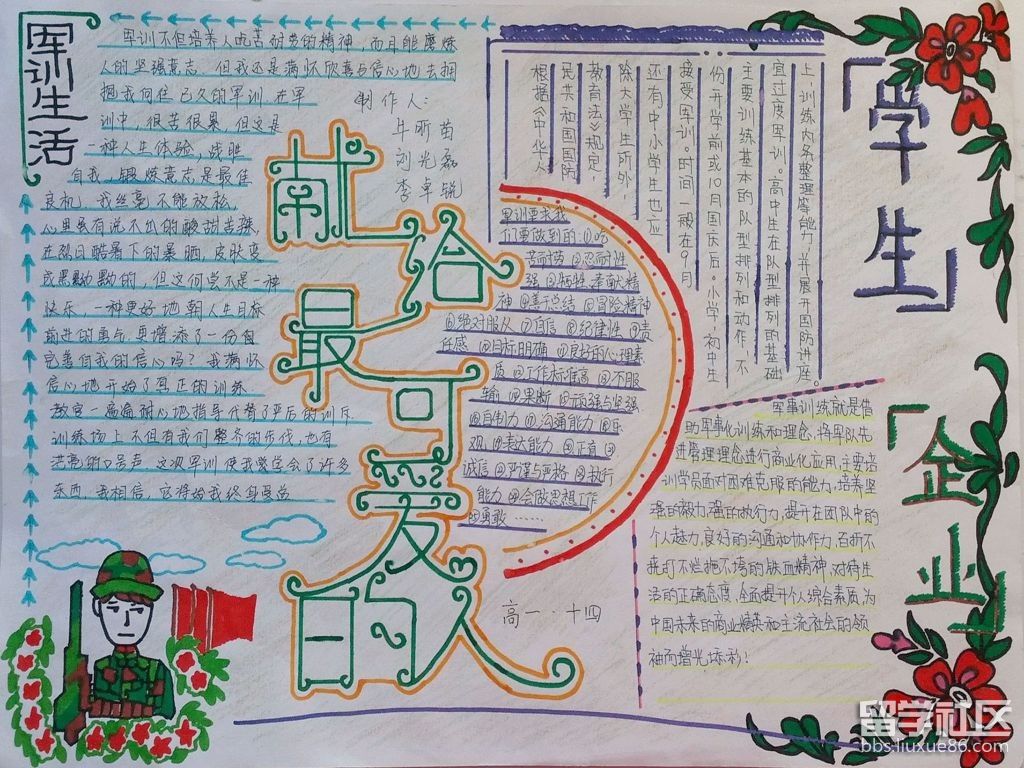 军训生活
军训不但培养人吃苦耐劳的精神，而且能磨炼
人的坚强意志，但我还是满怀欣喜与信心地去拥
抱我向往已久的军训。在军
训中，很苦很累，但这是
一种人生体验，战胜
自我，锻炼意志是最佳
良机。我丝毫不能放松，
心里虽有说不出的酸甜苦辣，
在烈日酷暑下的暴晒，皮肤变
成黑黝黝的，但这何尝不是一种
快乐，一种更好地朝人生目标
前进的勇气，更增添了一份自
完善自我的信心吗？我满怀
信心地开始了真正的训练
教官一遍遍耐心地指导代替了平后的训斥
训练场上不但有我们整齐的步伐，也有
洪亮的口号声，这次军训使我学会了许多
东西，我相信，它将给我终身受益
制作人：
牛昕苗
刘光磊
李卓锐
献给最可爱的人
根据《中华人
民共和国国防
教育法》规定，
除大学生所外，
还有中小学生也应
接受军训。时间一般在9月
份开学前或10月国庆后。小学、初中生
主要训练基本的队型排列和动作，不
宜过度军训。高中生在队型排列的基础
上训练内务整理等能力，并展开国防讲座。
军训要求我
们要做到的：①吃
苦耐劳 ②忍耐性
强 ③牺牲奉献精
神 ④善于总结 ⑤冒险精神
⑥绝对服从 ⑦自信 ⑧纪律性 ⑨责
任感 ⑩目标明确 ⑪良好的心理素
质 ⑫工作标准高 ⑬不服
输 ⑭果断 ⑮顽强与坚强
⑯自制力 ⑰沟通能力 ⑱乐
观 ⑲表达能力 ⑳正直
诚信 严谨与严格 执行
能力 会做思想工作
勇敢……
高一·十四
「学生」
「企业」
军事训练就是借
助军事化训练和理念，将军队先
进管理理念进行商业化应用，主要培
训学员面对困难克服的能力，培养坚
强的毅力，强的执行力，提升在团队中的
个人魅力，良好的沟通和协作力，百折不
挠打不烂拖不垮的铁血精神，对待生
活的正确态度，全面提升个人综合素质，为
中国未来的商业精英和主流社会的领
袖而增光添彩！
留学社区
bbs.liuxue86.com